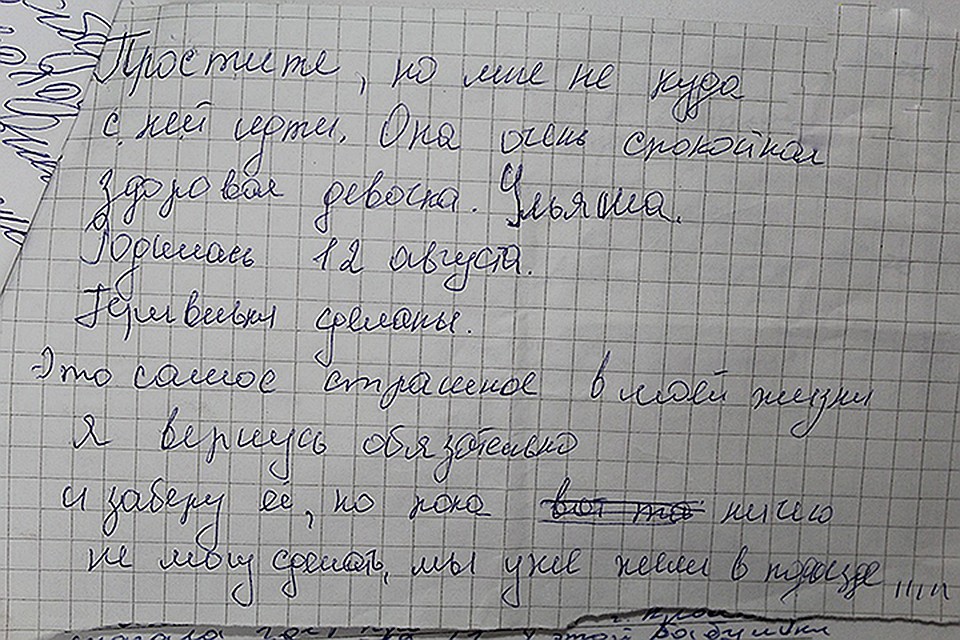 Простите, но мне не куда
с ней идти. Она очень спокойная
здоровая девочка. Ульяша.
Родилась 12 августа.
Прививки сделаны.
Это самое страшное в моей жизни
Я вернусь обязательно
и заберу её, но пока ничего
не могу сделать, мы уже жили в подъезде